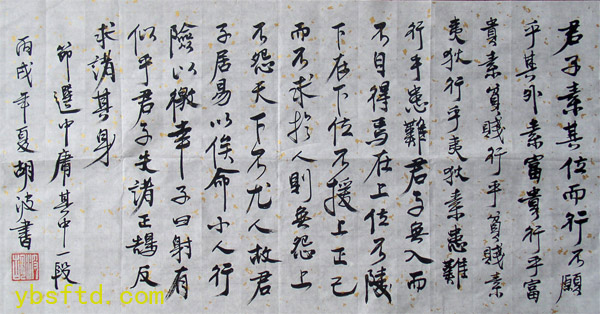 君子素其位而行不願
乎其外素富貴行乎富
貴素貧賤行乎貧賤素
夷狄行乎夷狄素患難
行乎患難君子無入而
不自得焉在上位不陵
下在下位不援上正己
而不求於人則無怨上
不怨天下不尤人故君
子居易以俟命小人行
險以徼幸子曰射有
似乎君子失諸正鵠反
求諸其身
節選中庸其中一段
丙戌年夏胡波書
ybsftd.com